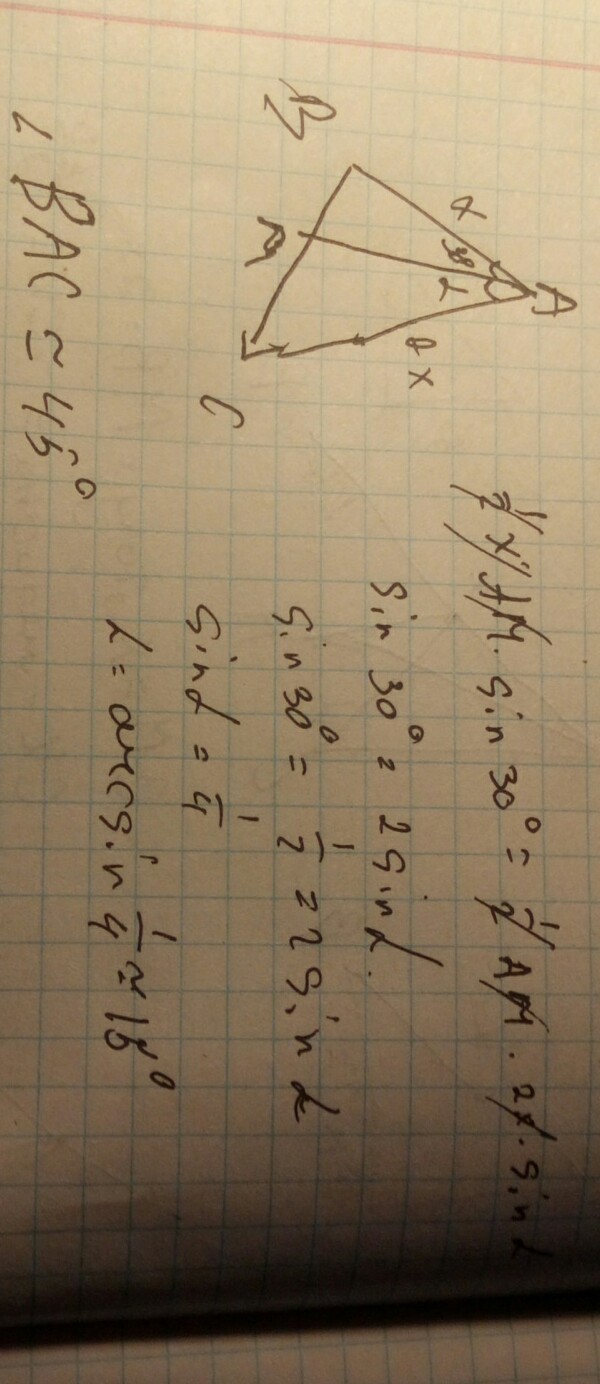 A
x
30°
α
2x
B
M
C
1/2 x AM · sin 30° = 1/2 AM · 2x · sin α
sin 30° = 2 sin α.
sin 30° = 1/2 = 2 sin α
sin α = 1/4
α = arcsin 1/4 ≈ 15°
∠ BAC ≃ 45°